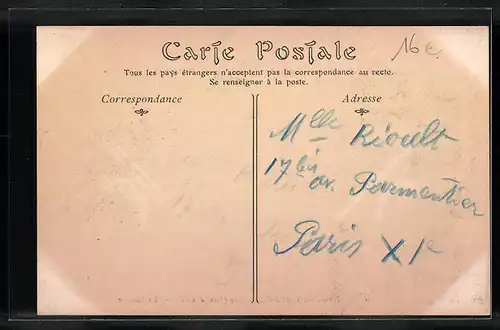 16€
Carte Postale
Tous les pays étrangers n'acceptent pas la correspondance au recto.
Se renseigner à la poste.
Correspondance
Adresse
Mlle Rioult
17 bis
av. Parmentier
Paris XIe